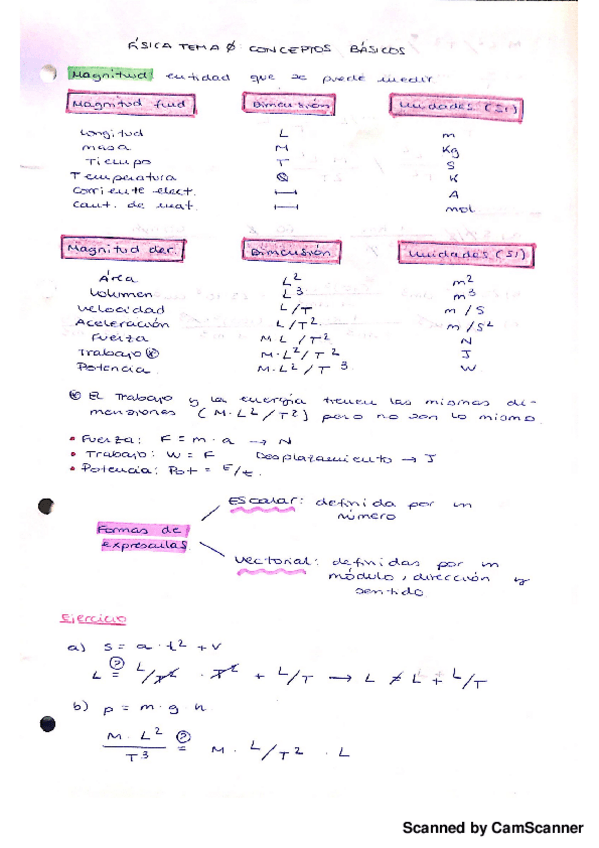 FÍSICA TEMA 0 CONCEPTOS BÁSICOS
Magnitud: entidad que se puede medir
Magnitud fund Dimensión Unidades (SI)
Longitud L m
masa M Kg
Tiempo T S
Temperatura K
Corriente elect. A
Cant. de mat. mol
Magnitud der. Dimensión Unidades (SI)
Área L² m²
Volumen L³ m³
Velocidad L/T m/s
Aceleración L/T² m/s²
Fuerza M·L/T² N
Trabajo (*) M·L²/T² J
Potencia M·L²/T³ W
(*) El trabajo y la energía tienen las mismas di-
mensiones (M·L²/T²) pero no son lo mismo.
• Fuerza: F = m·a → N
• Trabajo: W = F Desplazamiento → J
• Potencia: Pot = E/t.
Escalar: definida por un
número
Formas de
expresarlas
Vectorial: definidas por un
módulo, dirección y
sentido.
Ejercicio
a) s = a·t² + v
L ≟ L/T² · T² + L/T → L ≠ L + L/T
b) p = m·g·h
M·L²/T³ ≟ M·L/T² · L
Scanned by CamScanner